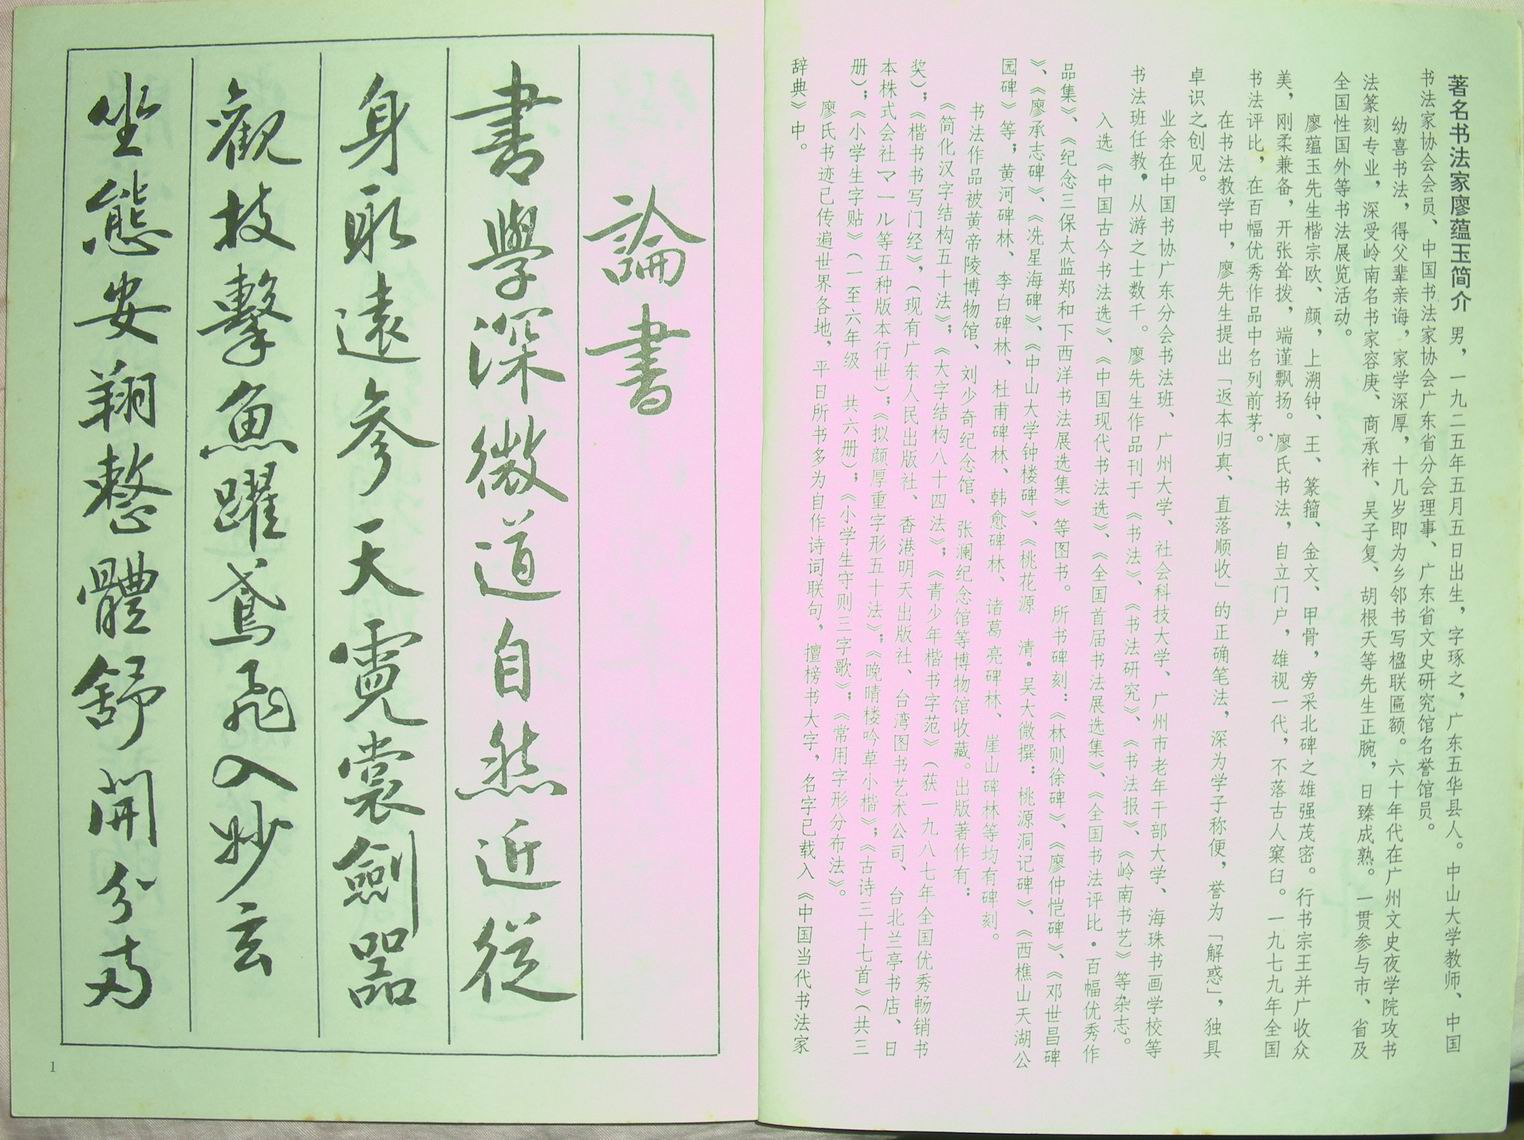 著名书法家廖蕴玉简介　男，一九二五年五月五日出生，字琢之，广东五华县人。中山大学教师、中国
书法家协会会员、中国书法家协会广东省分会理事、广东省文史研究馆名誉馆员。
幼喜书法，得父辈亲诲，家学深厚，十几岁即为乡邻书写楹联匾额。六十年代在广州文史夜学院攻书
法篆刻专业，深受岭南名书家容庚、商承祚、吴子复、胡根天等先生正腕，日臻成熟。一贯参与市、省及
全国性国外等书法展览活动。
廖蕴玉先生楷宗欧、颜，上溯钟、王、篆籀、金文、甲骨，旁采北碑之雄强茂密。行书宗王并广收众
美，刚柔兼备，开张耸拨，端谨飘扬。廖氏书法，自立门户，雄视一代，不落古人窠臼。一九七九年全国
书法评比，在百幅优秀作品中名列前茅。
在书法教学中，廖先生提出「返本归真、直落顺收」的正确笔法，深为学子称便，誉为「解惑」，独具
卓识之创见。
业余在中国书协广东分会书法班、广州大学、社会科技大学、广州市老年干部大学、海珠书画学校等
书法班任教，从游之士数千。廖先生作品刊于《书法》、《书法研究》、《书法报》、《岭南书艺》等杂志。
入选《中国古今书法选》、《中国现代书法选》、《全国首届书法展选集》、《全国书法评比·百幅优秀作
品集》、《纪念三保太监郑和下西洋书法展选集》等图书。所书碑刻：《林则徐碑》、《廖仲恺碑》、《邓世昌碑
》、《廖承志碑》、《冼星海碑》、《中山大学钟楼碑》、《桃花源　清·吴大微撰：桃源洞记碑》、《西樵山天湖公
园碑》等；黄河碑林、李白碑林、杜甫碑林、韩愈碑林、诸葛亮碑林、崖山碑林等均有碑刻。
书法作品被黄帝陵博物馆、刘少奇纪念馆、张澜纪念馆等博物馆收藏。出版著作有：
《简化汉字结构五十法》；《大字结构八十四法》；《青少年楷书字范》（获一九八七年全国优秀畅销书
奖）；《楷书书写门经》，（现有广东人民出版社、香港明天出版社、台湾图书艺术公司、台北兰亭书店、日
本株式会社マール等五种版本行世）；《拟颜厚重字形五十法》；《晚晴楼吟草小楷》；《古诗三十七首》（共三
册）；《小学生字贴》（一至六年级　共六册）；《小学生守则三字歌》；《常用字形分布法》。
廖氏书迹已传遍世界各地，平日所书多为自作诗词联句，擅榜书大字，名字已载入《中国当代书法家
辞典》中。
論書
書學深微道自然近從
身取遠參天霓裳劍器
觀技擊魚躍鳶飛入妙玄
坐態安翔整體舒開分布
1